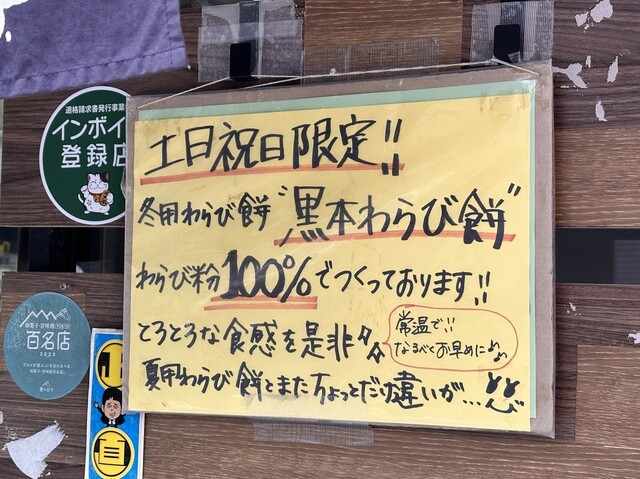 土日祝日限定!!
冬用わらび餅"黒本わらび餅"
わらび粉100%でつくっております!!
とろとろな食感を是非
常温で!!
なるべくお早めに
夏用わらび餅とまたちょっとだけ違いが...
適格請求書発行事業
インボイ
登録店
百名店
2023